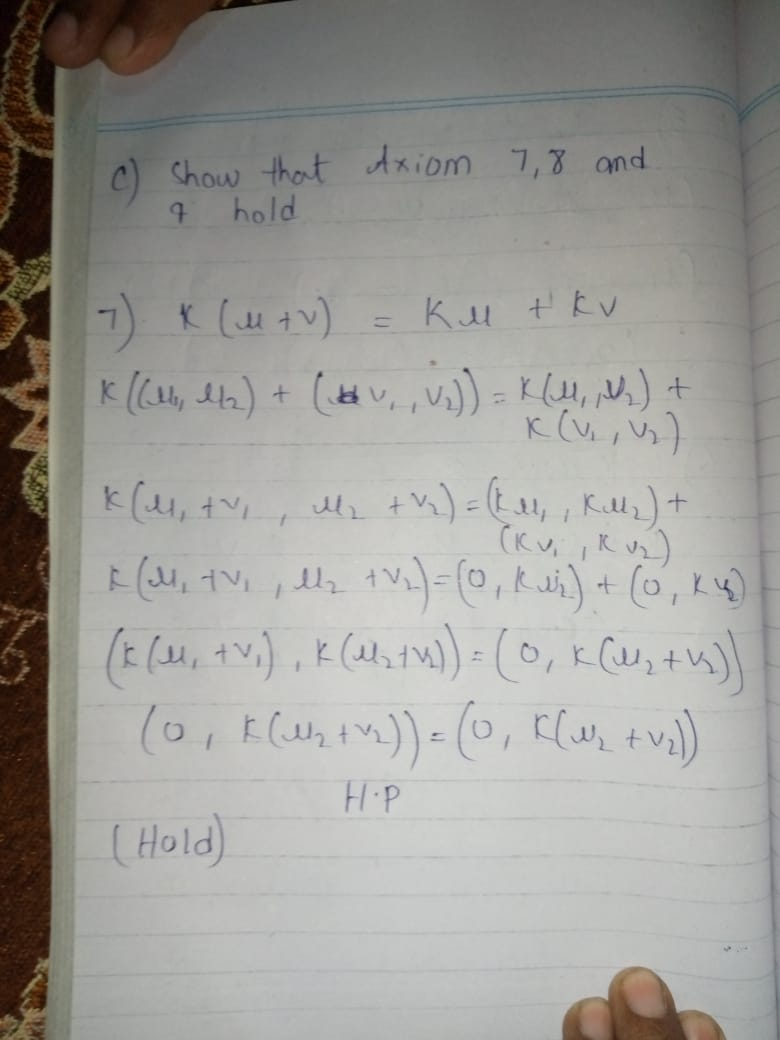 c) Show that Axiom 7, 8 and
9 hold
7) K (u + v) = Ku + kv
K((u₁, u₂) + (v₁, v₂)) = K(u₁, u₂) +
K(v₁, v₂)
K(u₁ + v₁, u₂ + v₂) = (ku₁, Ku₂) +
(Kv₁, Kv₂)
K(u₁ + v₁, u₂ + v₂) = (0, Ku₂) + (0, Kv₂)
(K(u₁ + v₁), K(u₂ + v₂)) = (0, K(u₂ + v₂))
(0, K(u₂ + v₂)) = (0, K(u₂ + v₂))
H.P
(Hold)